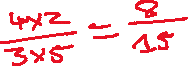 4×2/3×5 = 8/15